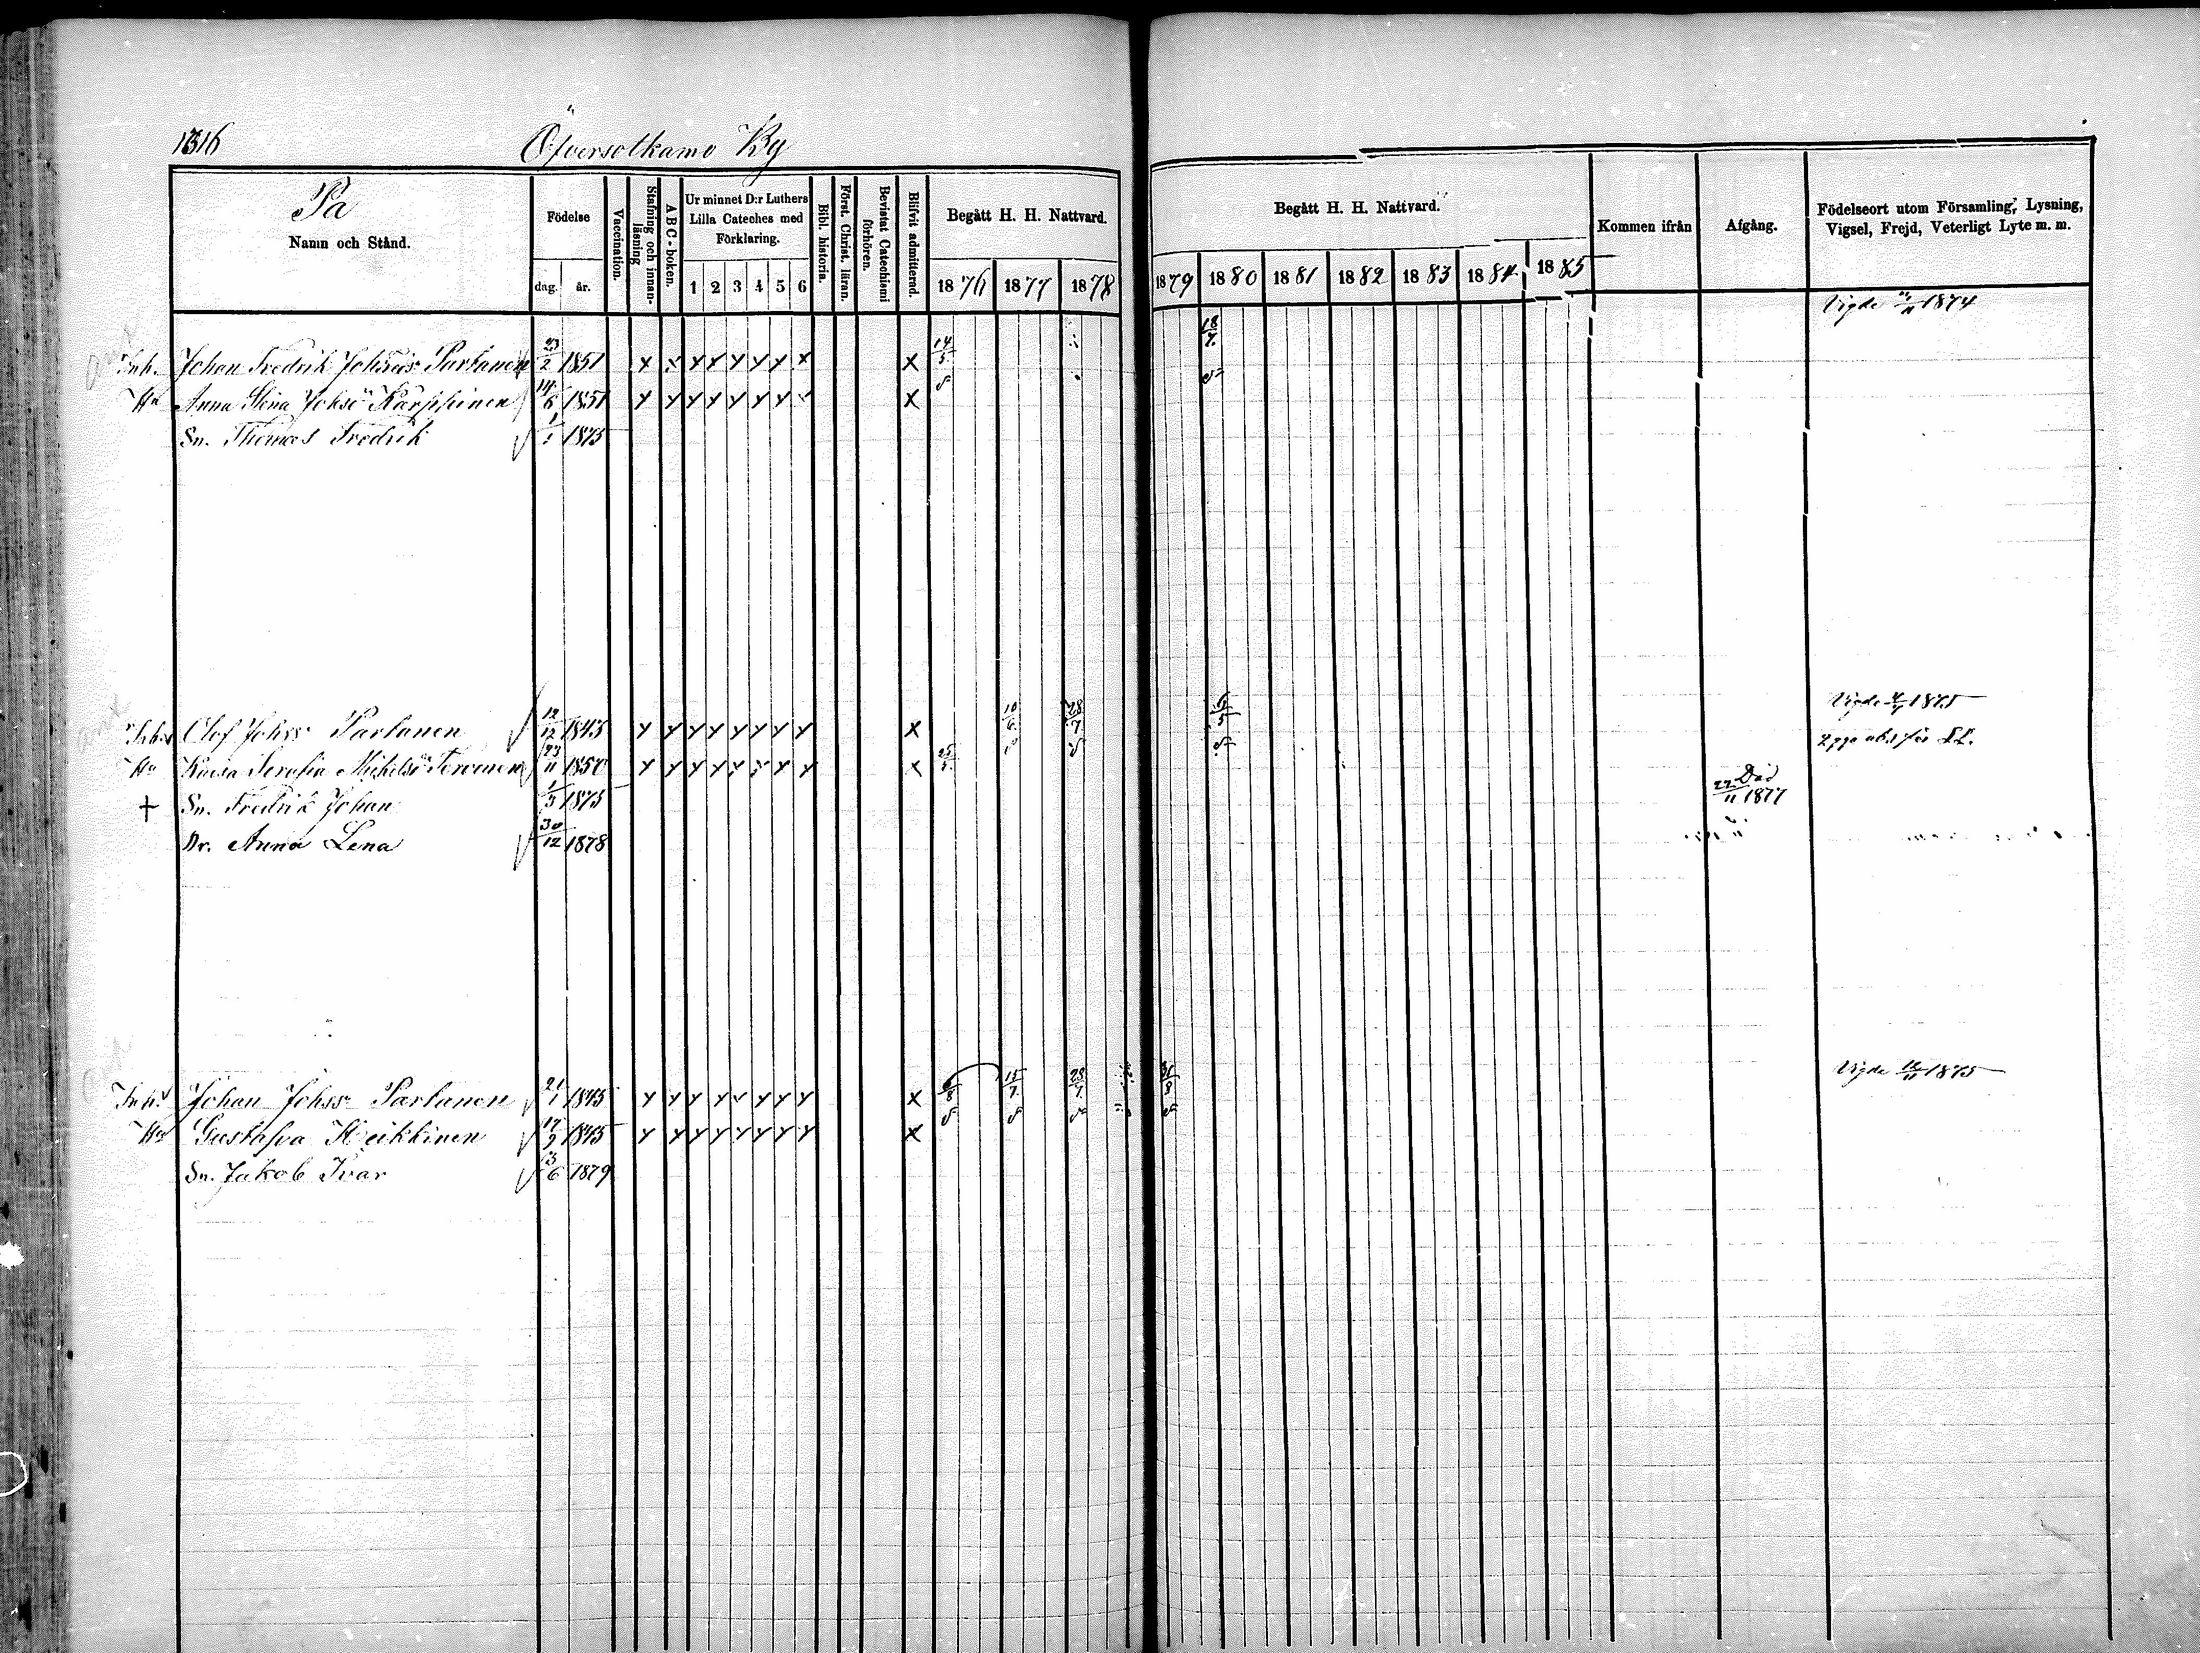 1316 Öfversotkamo By
På
Namn och Stånd.
Födelse
dag. år.
Vaccination.
Stafning och innan-läsning
ABC-boken.
Ur minnet D:r Luthers
Lilla Cateches med
Förklaring.
1 2 3 4 5 6
Bibl. historia.
Först. Christ. läran.
Bevistat Catechismi förhören.
Blifvit admitterad.
Begått H. H. Nattvard.
1876 1877 1878
Begått H. H. Nattvard.
1879 1880 1881 1882 1883 1884 1885
Kommen ifrån
Afgång.
Födelseort utom Församling, Lysning,
Vigsel, Frejd, Veterligt Lyte m. m.
Vigde 1874
Inh. Johan Fredrik Partanen 23/2 1851 x x x x x x x x x 14/5 18/7
Hu Anna Stina Johsd Karppinen 14/6 1851 x x x x x x x x x
Sn. Thomas Fredrik 1875
Vigde 1875
Inh. Olof Johss Partanen 12/12 1843 x x x x x x x x x 10/6 28/7
Hu Kaisa Serafia Michelsd Tervonen 23/11 1850 x x x x x x x x x 25/5
† Sn. Fredrik Johan 1/3 1875 Död 22/11 1877
Dr. Anna Lena 30/12 1878
Vigde 1875
Inh. Johan Johss Partanen 21/1 1845 x x x x x x x x x 6/8 15/7 28/7 31/8
Hu Gustafva Heikkinen 17/9 1845 x x x x x x x x x
Sn. Jakob Ivar 13/6 1879